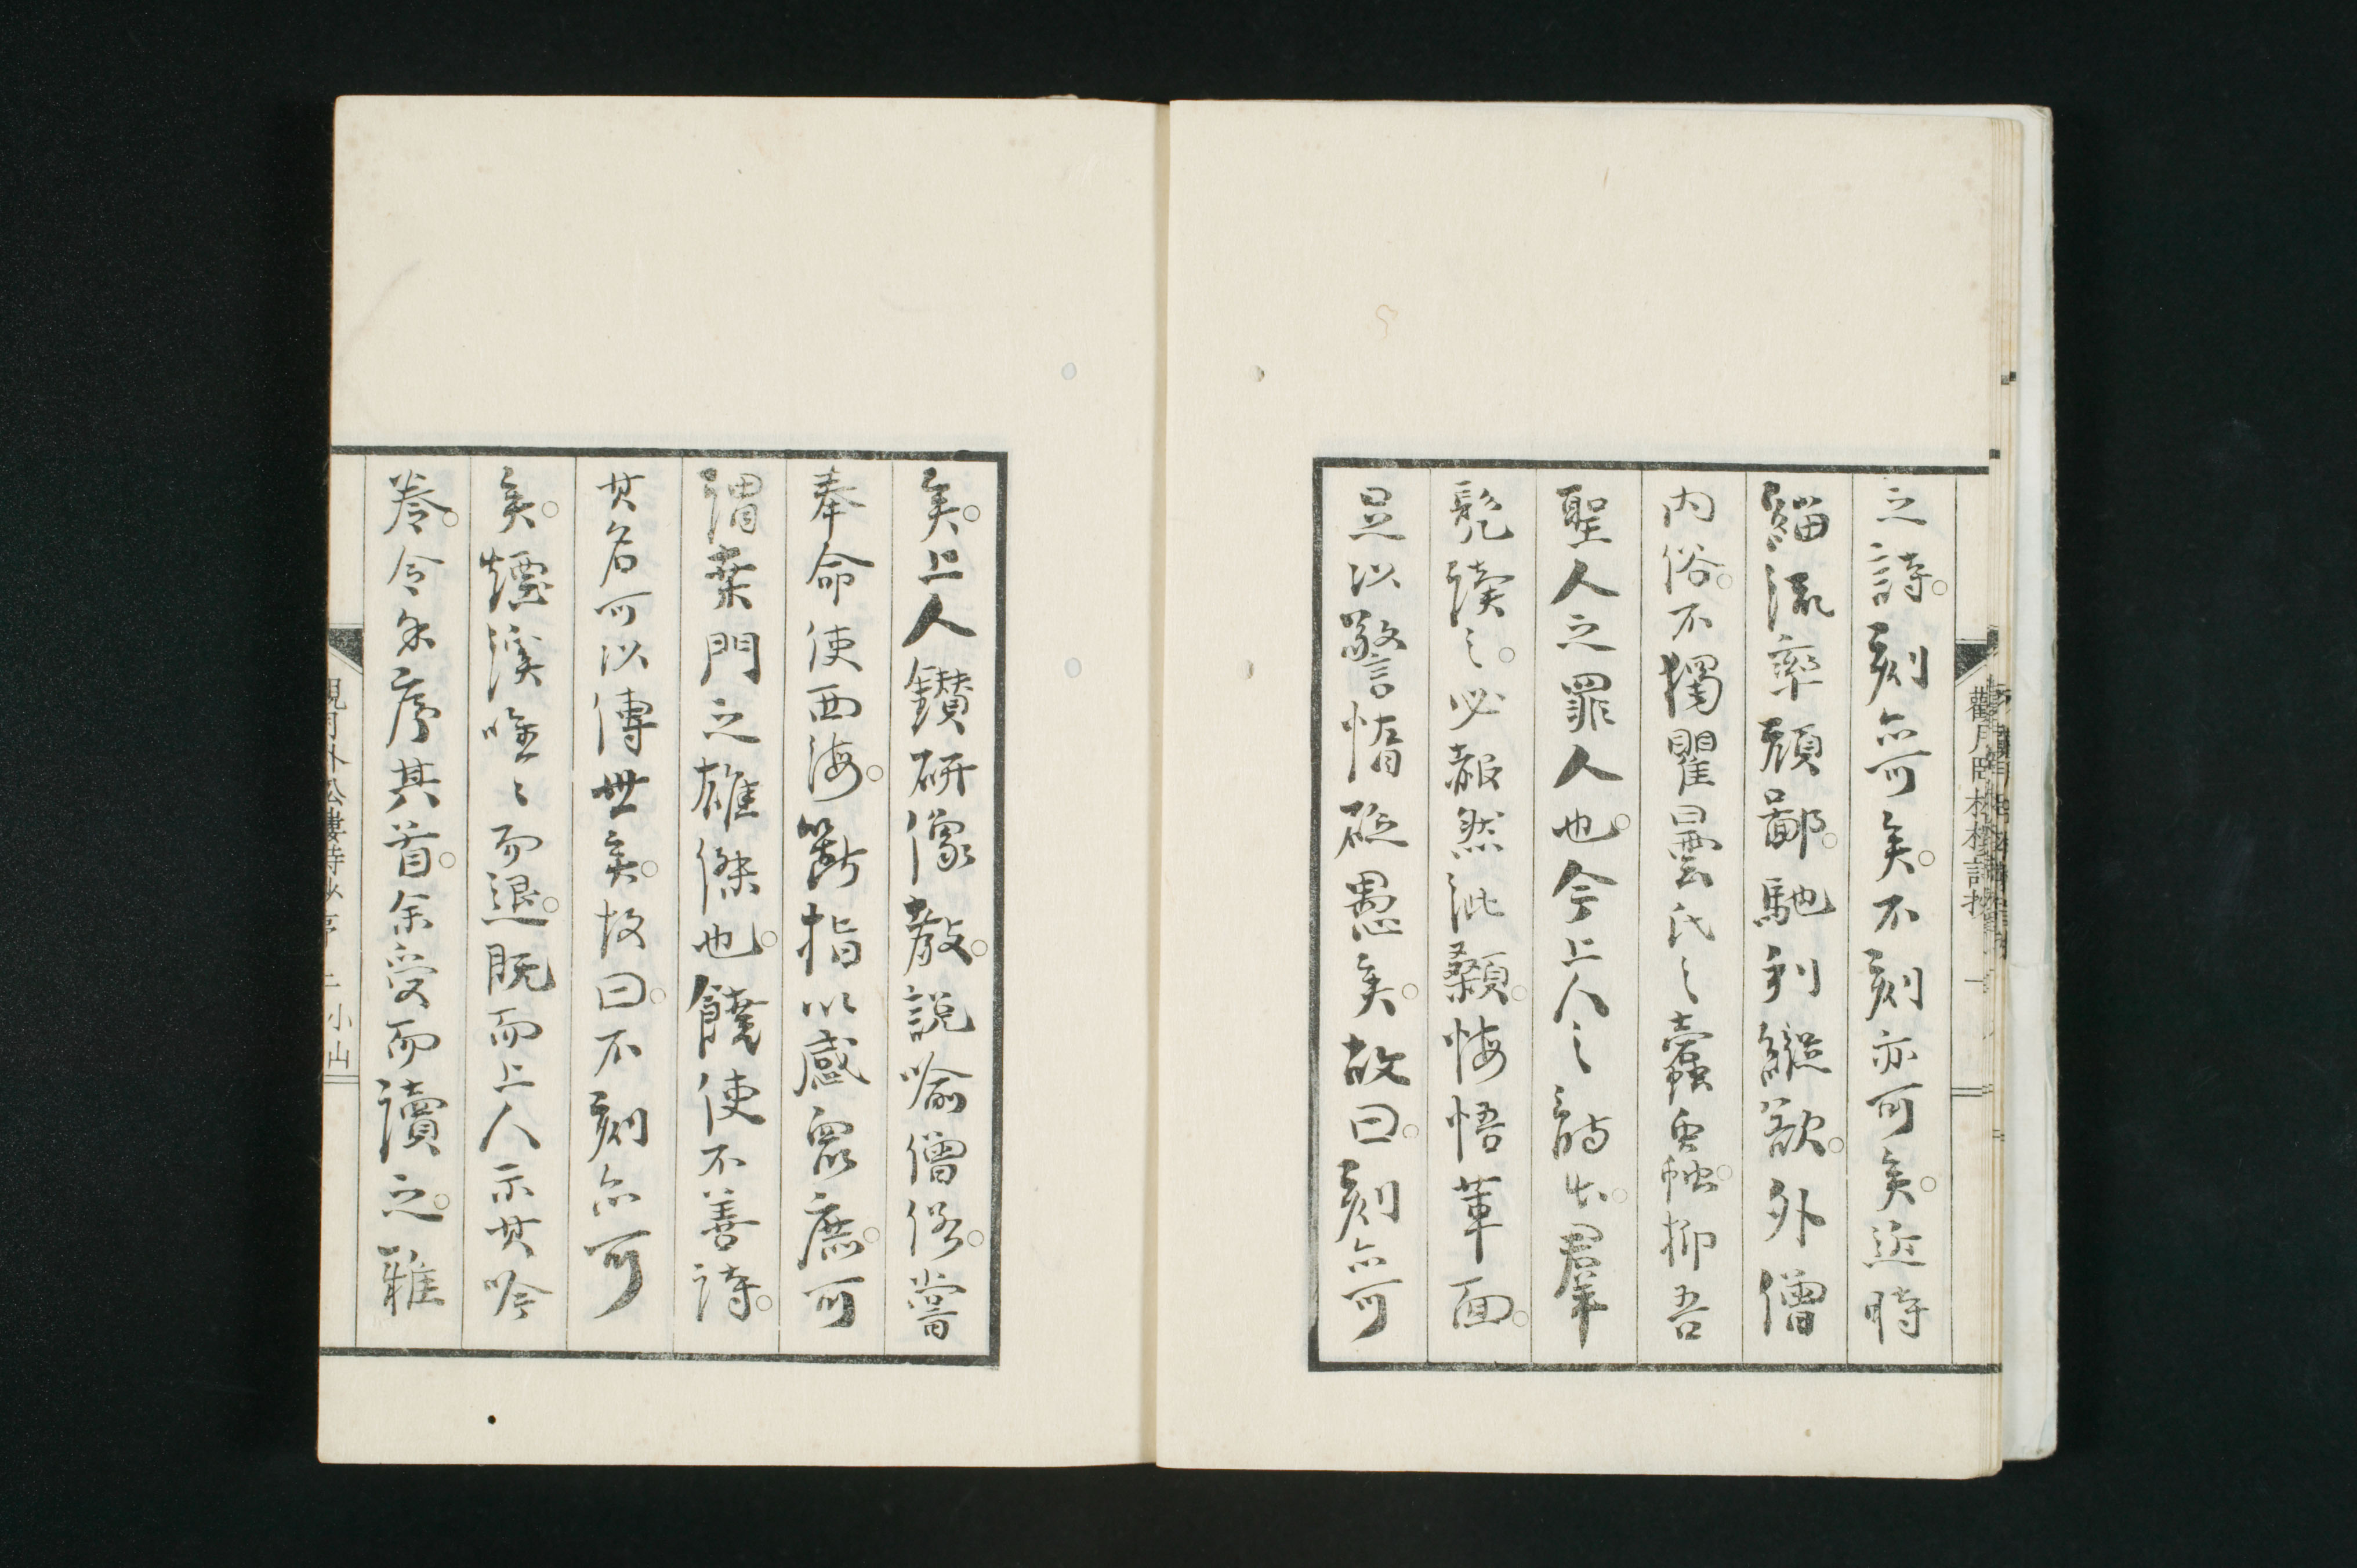 之詩。刻亦可矣。不刻亦可矣。近時
緇流率頑鄙。馳利縱欲。外僧
内俗。不獨瞿曇氏之蠹蝕。抑吾
聖人之罪人也。今上人之詩出。羣
髡讀之。必赧然泚顙。悔悟革面。
足以警惰砭愚矣。故曰。刻亦可
矣。上人鑽研像教。説喩僧俗。嘗
奉命使西海。斷指以感衆庶。可
謂桑門之雄傑也。饒使不善詩。
其名可以傳世矣。故曰。不刻亦可
矣。煙溪唯々而退。既而上人示其吟
卷。令余序其首。余受而讀之。雖